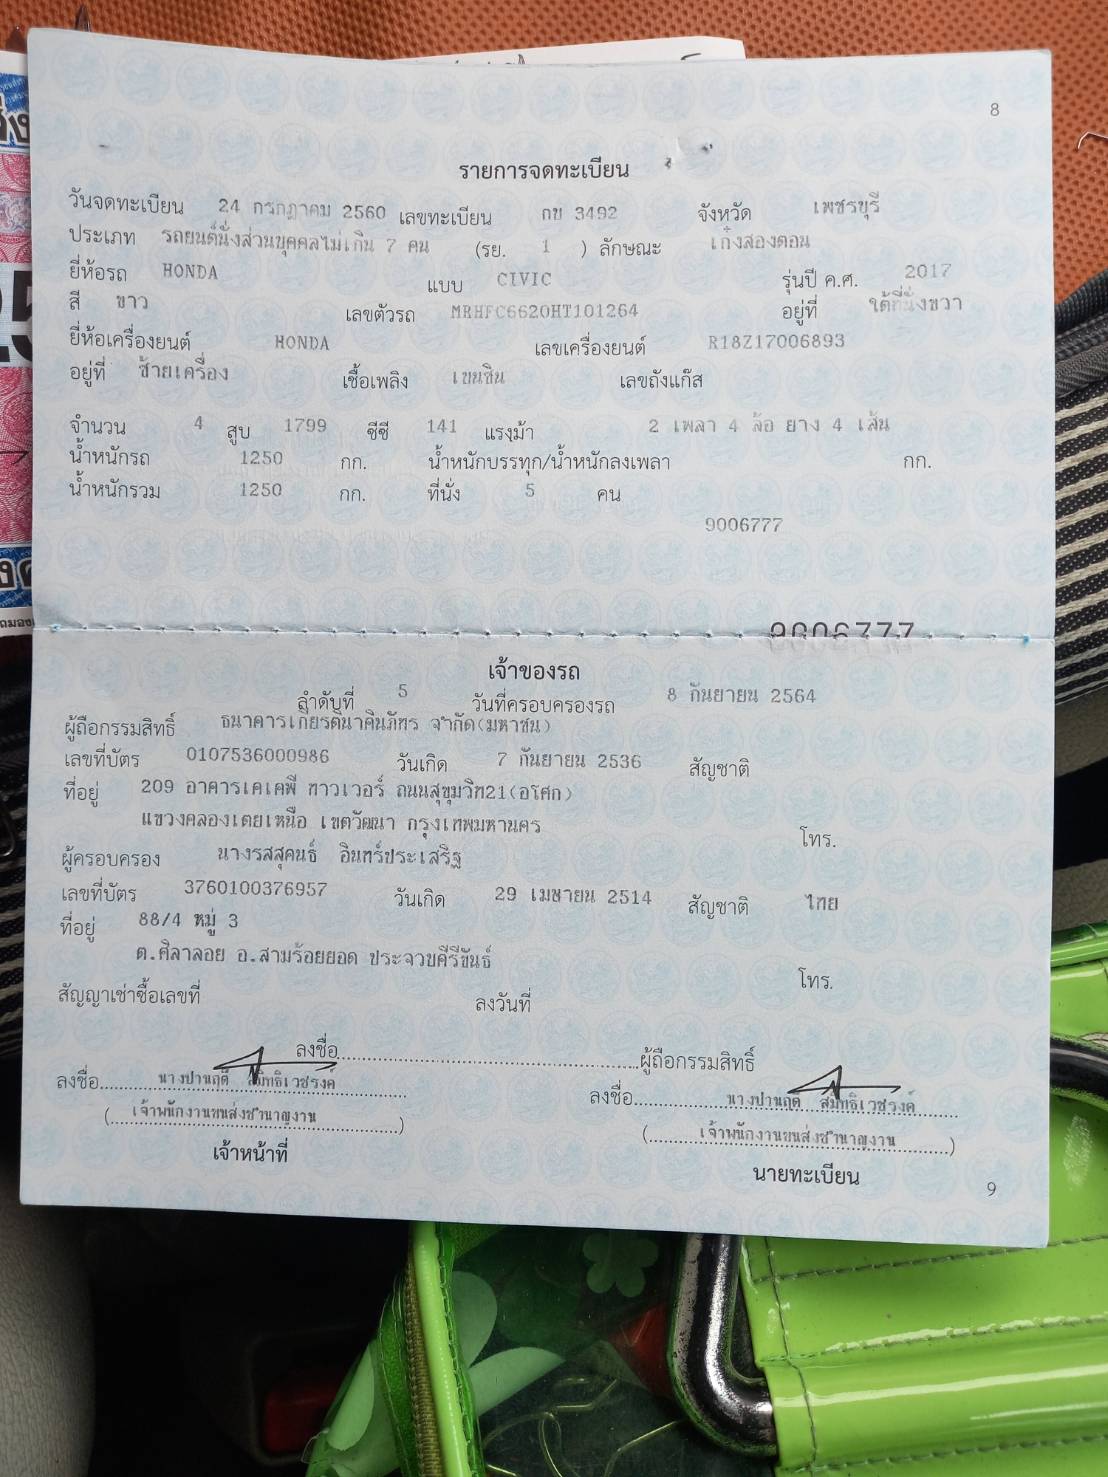 8
รายการจดทะเบียน
วันจดทะเบียน 24 กรกฎาคม 2560 เลขทะเบียน กข 3492 จังหวัด เพชรบุรี
ประเภท รถยนต์นั่งส่วนบุคคลไม่เกิน 7 คน (รย. 1 ) ลักษณะ เก๋งสองตอน
ยี่ห้อรถ HONDA แบบ CIVIC รุ่นปี ค.ศ. 2017
สี ขาว เลขตัวรถ MRHFC6620HT101264 อยู่ที่ ใต้ที่นั่งขวา
ยี่ห้อเครื่องยนต์ HONDA เลขเครื่องยนต์ R18Z17006893
อยู่ที่ ซ้ายเครื่อง เชื้อเพลิง เบนซิน เลขถังแก๊ส
จำนวน 4 สูบ 1799 ซีซี 141 แรงม้า 2 เพลา 4 ล้อ ยาง 4 เส้น
น้ำหนักรถ 1250 กก. น้ำหนักบรรทุก/น้ำหนักลงเพลา กก.
น้ำหนักรวม 1250 กก. ที่นั่ง 5 คน
9006777
9006777
เจ้าของรถ
ลำดับที่ 5 วันที่ครอบครองรถ 8 กันยายน 2564
ผู้ถือกรรมสิทธิ์ ธนาคารเกียรตินาคินภัทร จำกัด(มหาชน)
เลขที่บัตร 0107536000986 วันเกิด 7 กันยายน 2536 สัญชาติ
ที่อยู่ 209 อาคารเคเคพี ทาวเวอร์ ถนนสุขุมวิท21(อโศก)
แขวงคลองเตยเหนือ เขตวัฒนา กรุงเทพมหานคร โทร.
ผู้ครอบครอง นางรสสุคนธ์ อินทร์ประเสริฐ
เลขที่บัตร 3760100376957 วันเกิด 29 เมษายน 2514 สัญชาติ ไทย
ที่อยู่ 88/4 หมู่ 3
ต.ศิลาลอย อ.สามร้อยยอด ประจวบคีรีขันธ์ โทร.
สัญญาเช่าซื้อเลขที่ ลงวันที่
ลงชื่อ ผู้ถือกรรมสิทธิ์
ลงชื่อ นางปานฤดี สมิทธิเวชรงค์ ลงชื่อ นางปานฤดี สมิทธิเวชรงค์
(เจ้าพนักงานขนส่งชำนาญงาน) (เจ้าพนักงานขนส่งชำนาญงาน)
เจ้าหน้าที่ นายทะเบียน
9